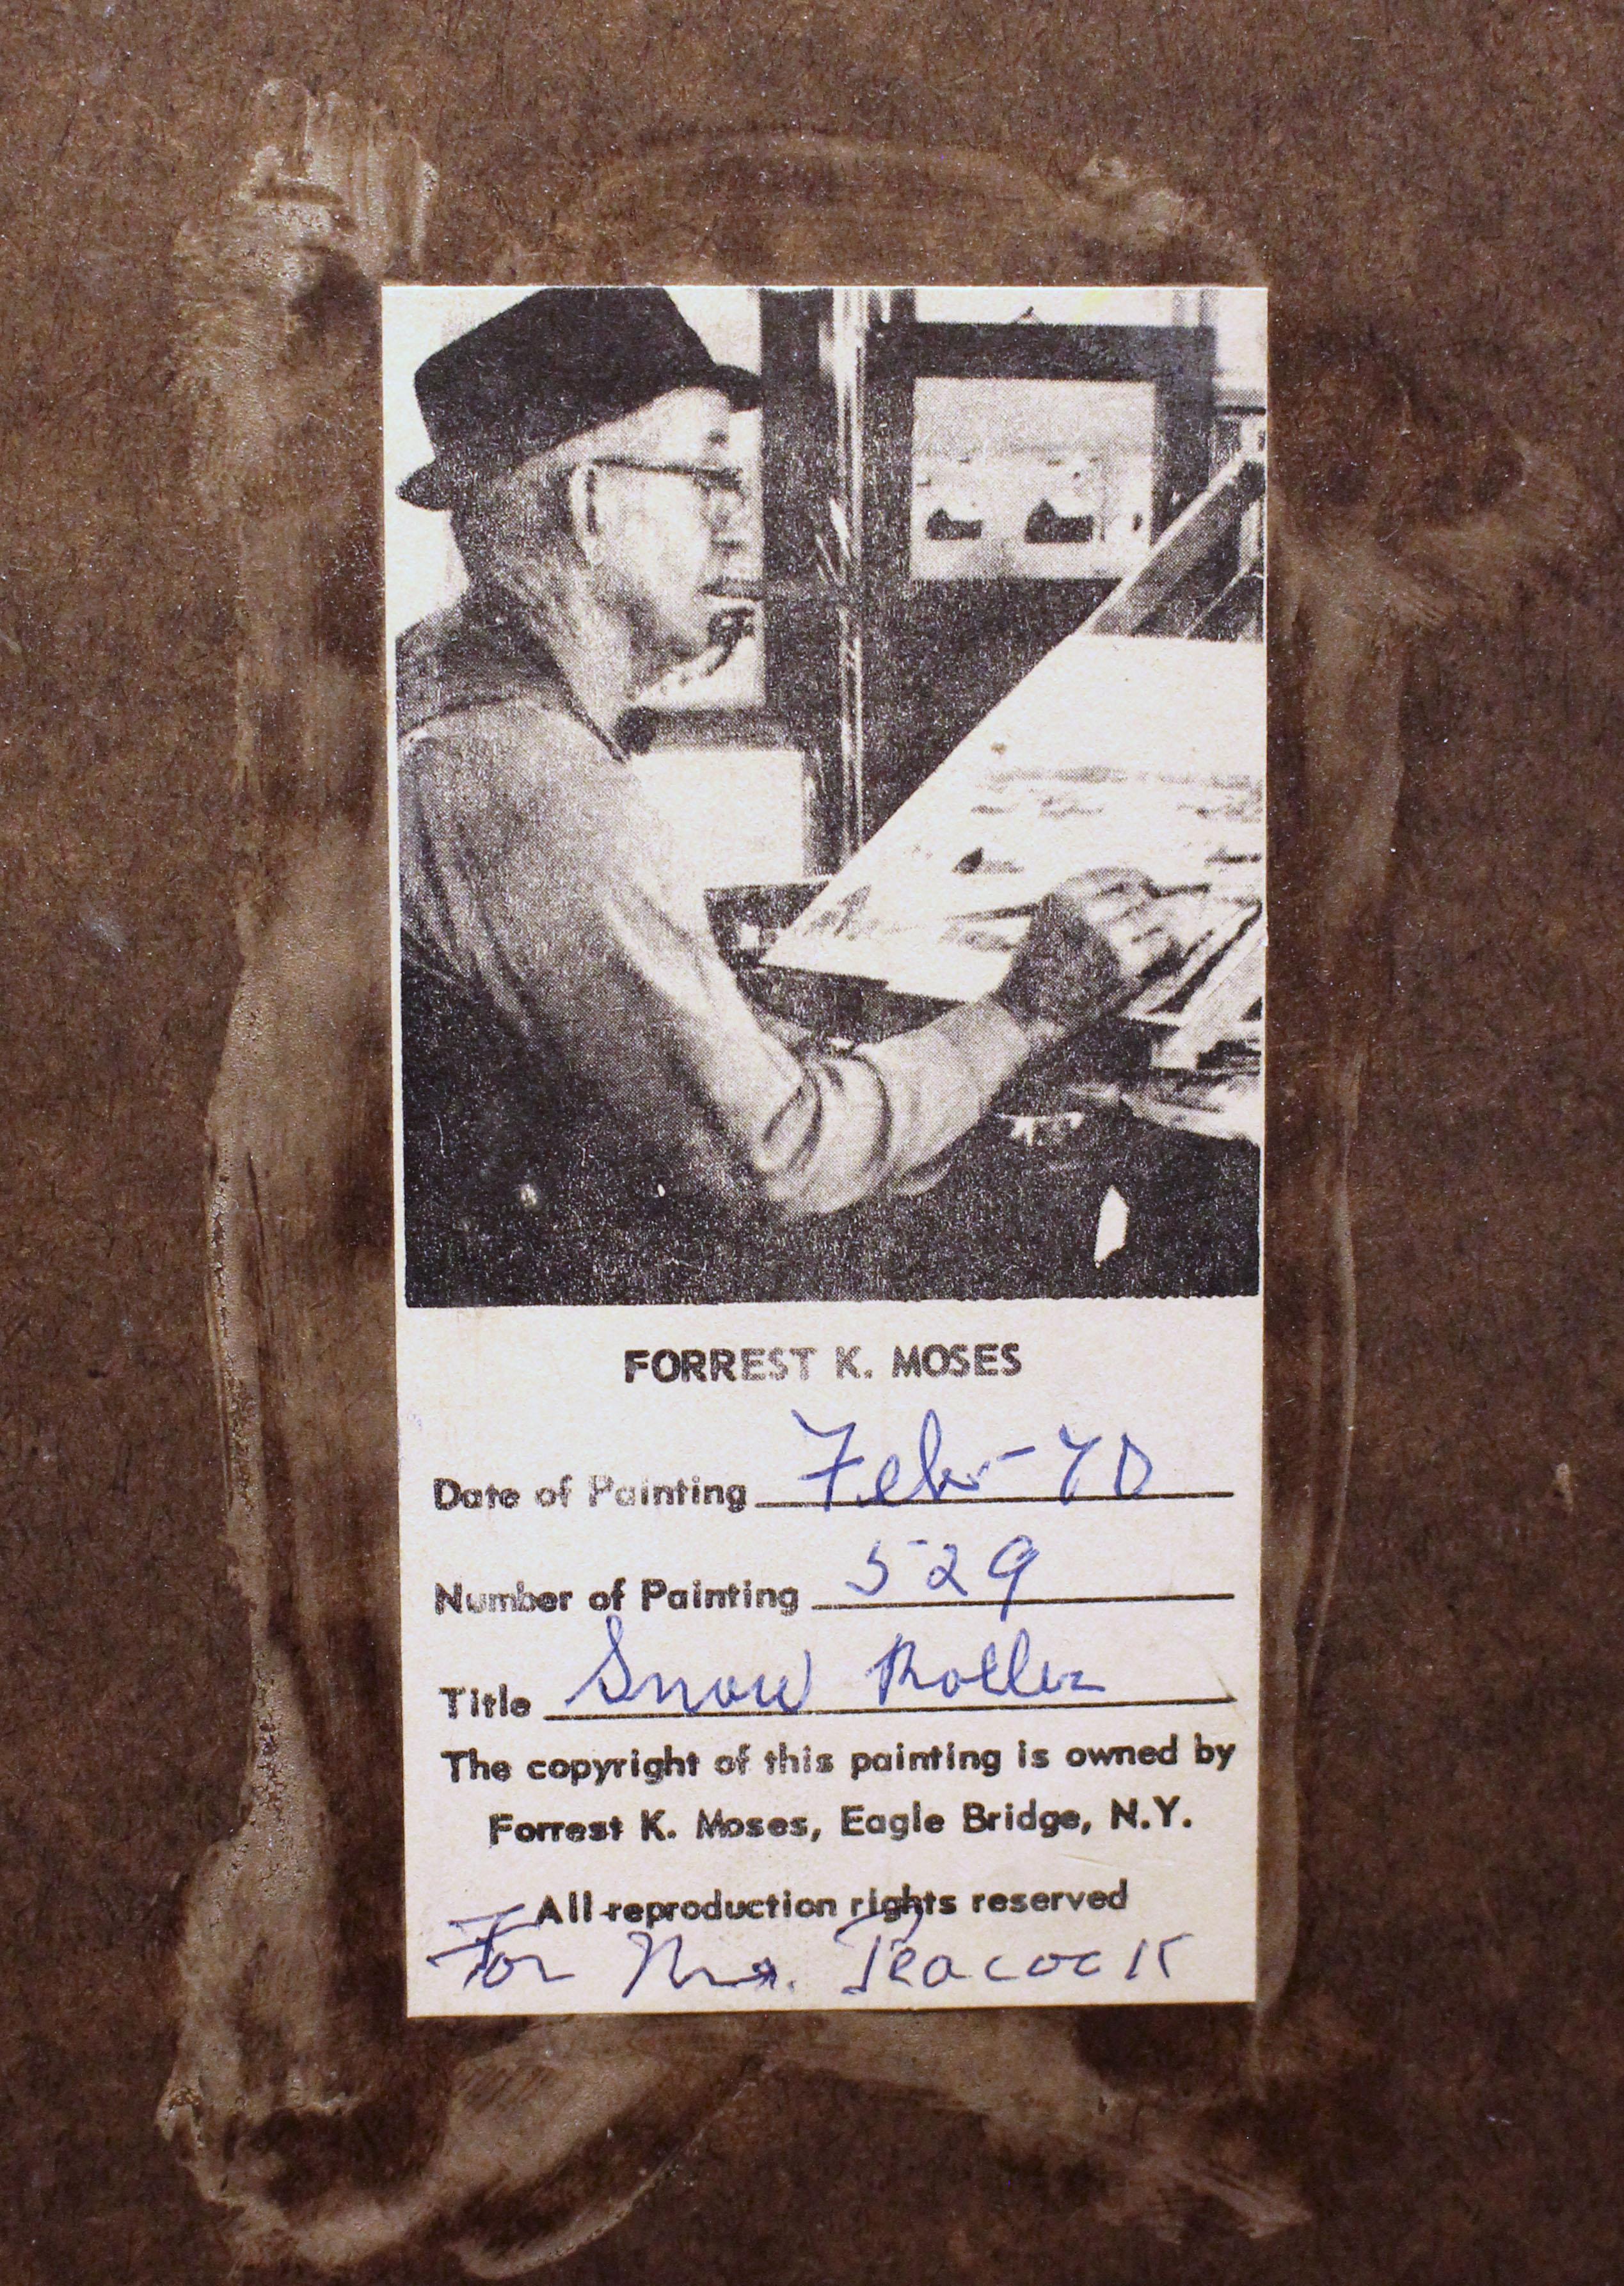 FORREST K. MOSES
Date of Painting Feb - 70
Number of Painting 529
Title Snow Roller
The copyright of this painting is owned by
Forrest K. Moses, Eagle Bridge, N.Y.
All reproduction rights reserved
For Mrs. Peacock